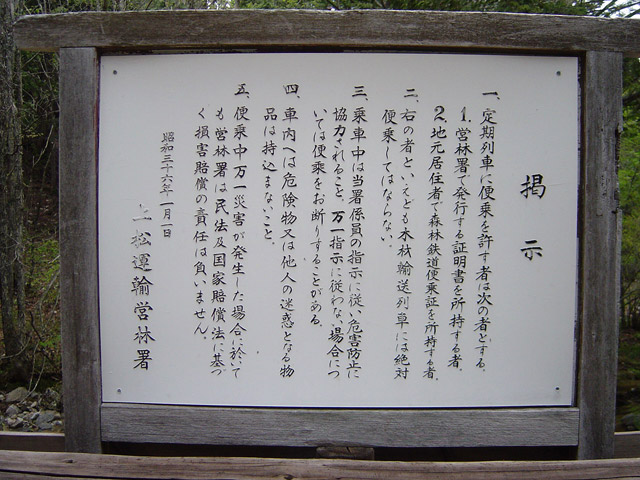 掲示
一、定期列車に便乗を許す者は次の者とする。
1.営林署で発行する証明書を所持する者。
2.地元居住者で森林鉄道便乗証を所持する者。
二、右の者といえども本材輸送列車には絶対
便乗してはならない。
三、乗車中は当署係員の指示に従い危害防止に
協力されること。万一指示に従わない場合につ
いては便乗をお断りすることがある。
四、車内へは危険物又は他人の迷惑となる物
品は持込まないこと。
五、便乗中万一災害が発生した場合に於いて
も営林署は民法及国家賠償法に基づ
く損害賠償の責任は負いません。
昭和三十六年一月一日
上松運輸営林署